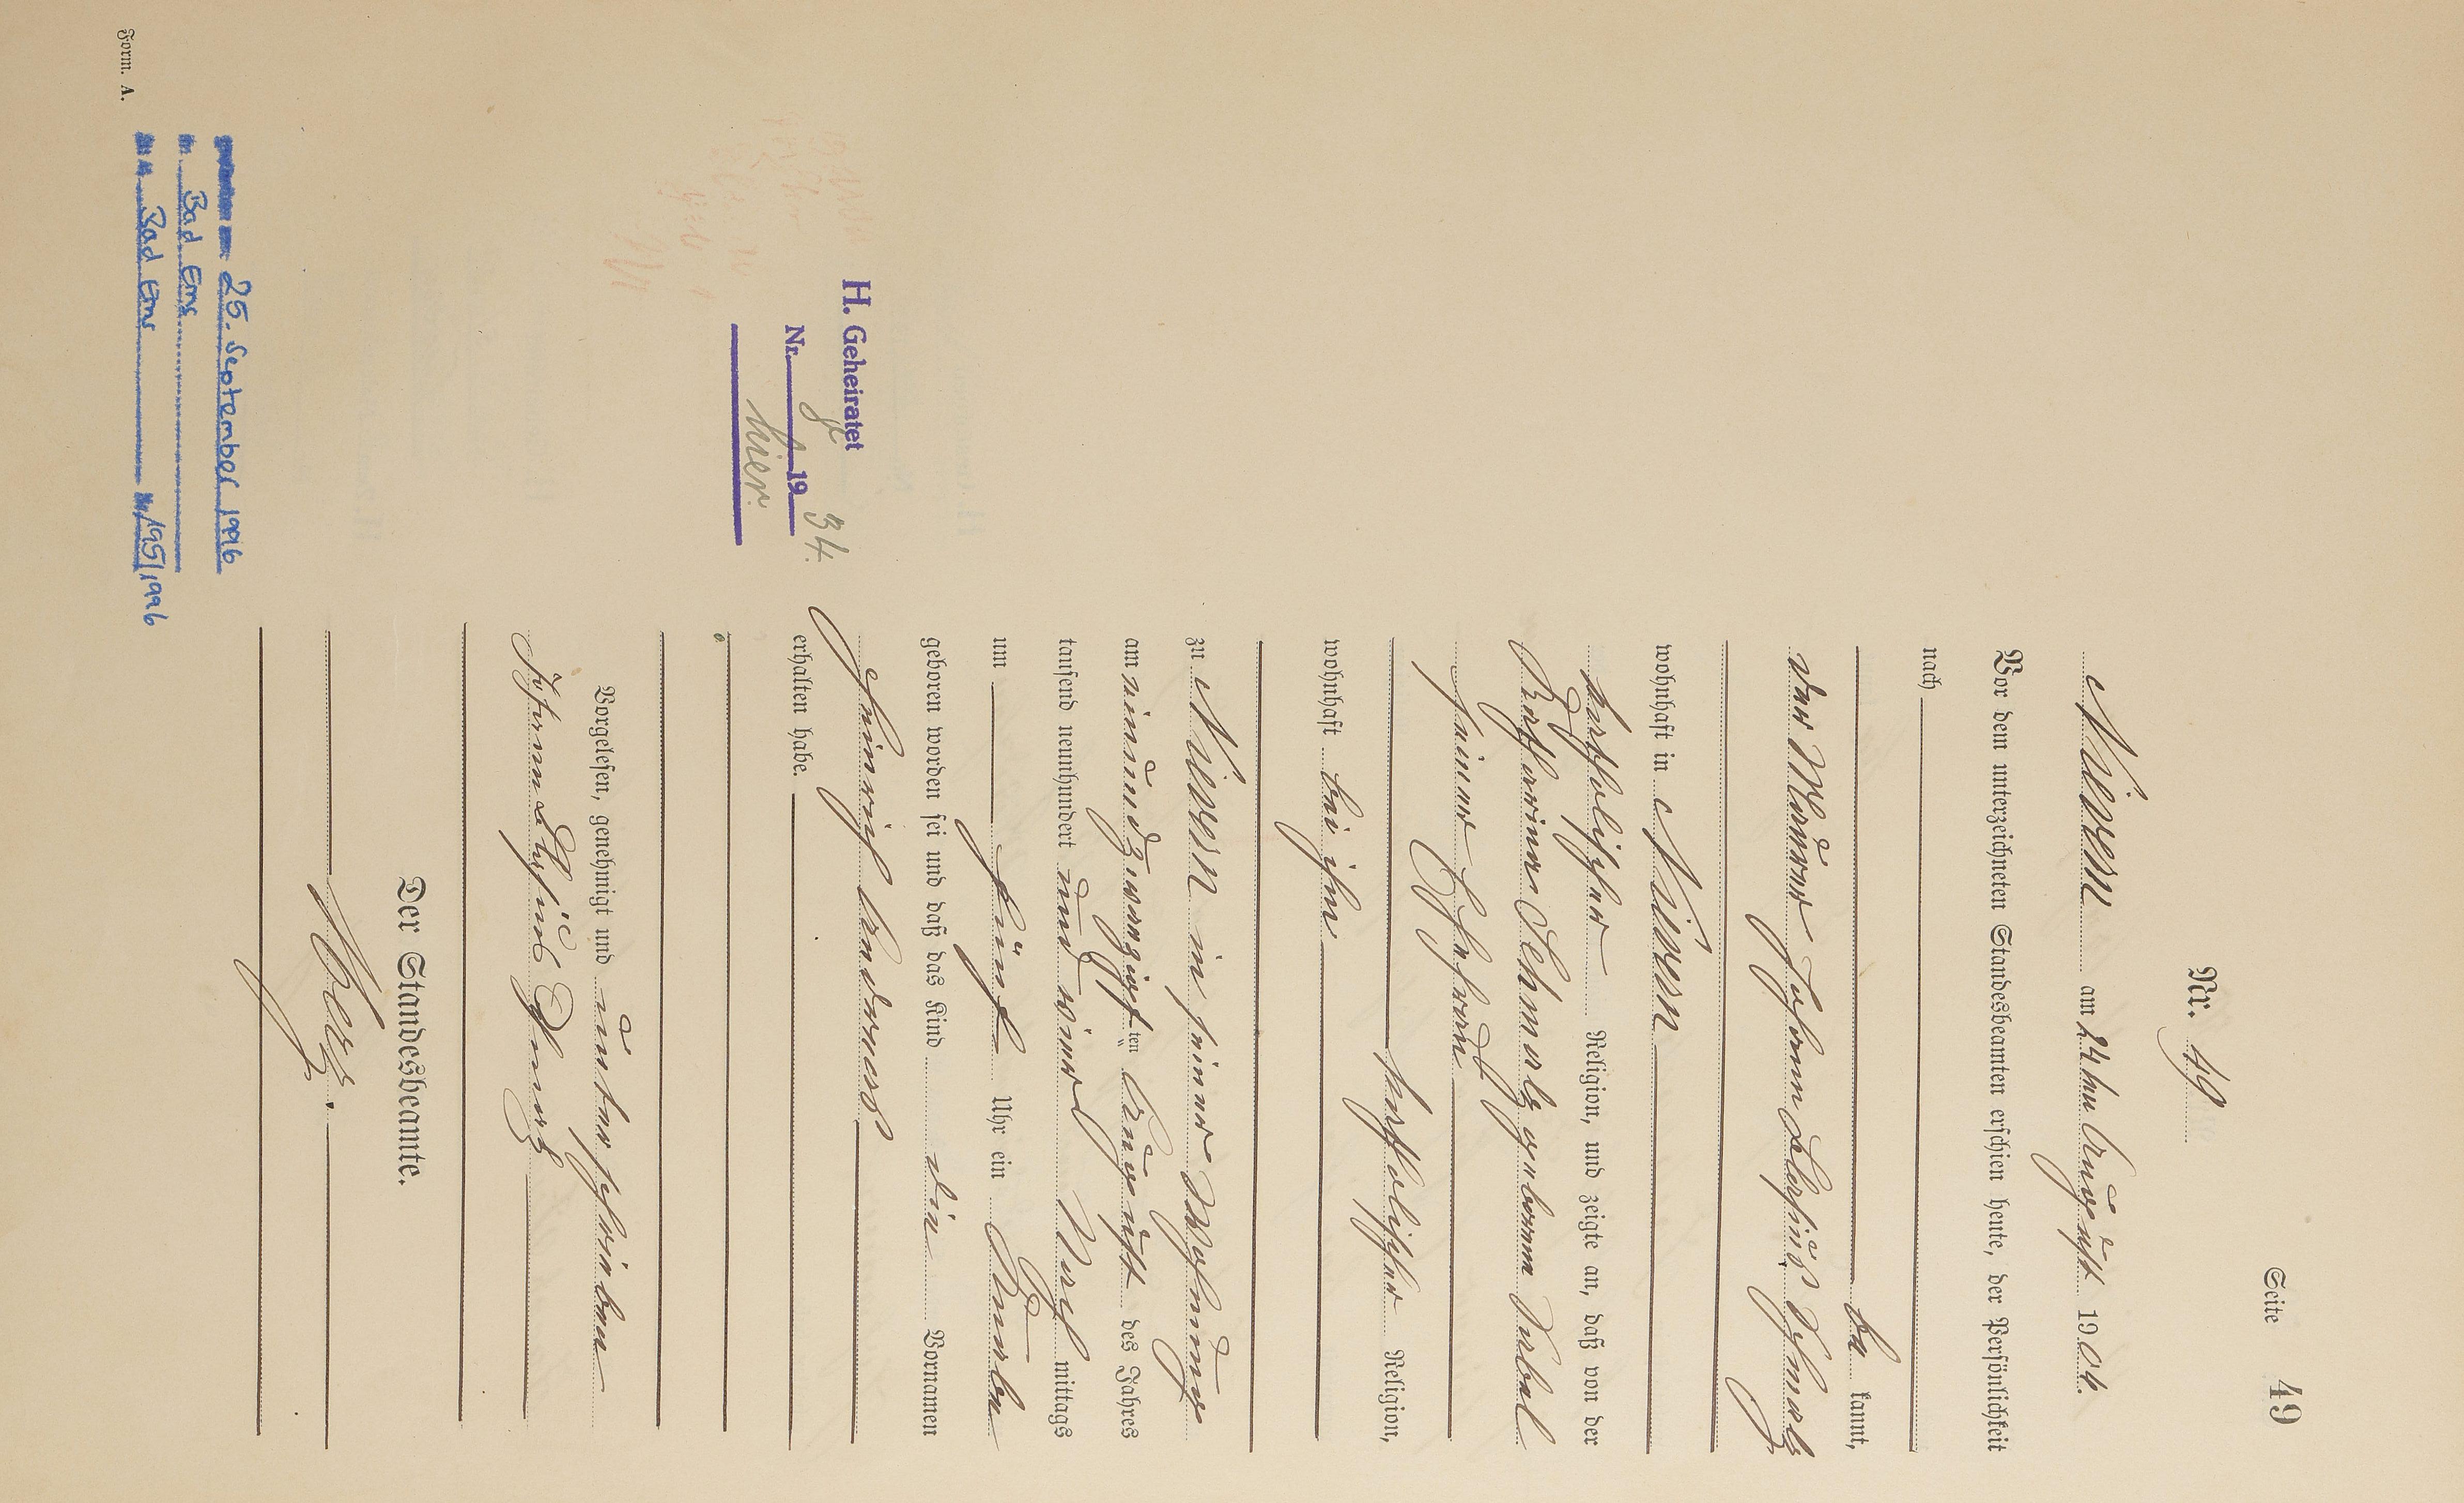 Seite 49
Nr. 49
Nievern am 24ten August 1904.
Vor dem unterzeichneten Standesbeamten erschien heute, der Persönlichkeit
nach
be kannt,
der Maurer Johann
wohnhaft in Nievern
katholischer Religion, und zeigte an, daß von der
Katharina Schmalz geborenen
seiner Ehefrau
katholischer Religion,
wohnhaft bei ihm
zu Nievern in seiner Wohnung
am einundzwanzigsten August des Jahres
tausend neunhundert und vier Nach mittags
um fünf Uhr ein Knabe
geboren worden sei und daß das Kind die Vornamen
Heinrich Andreas
erhalten habe.
H. Geheiratet
Nr. 1934.
hier.
Vorgelesen, genehmigt und unterschrieben
Johann
Der Standesbeamte.
25. September 1996
in Bad Ems
Bad Ems 195/1996
Form. A.